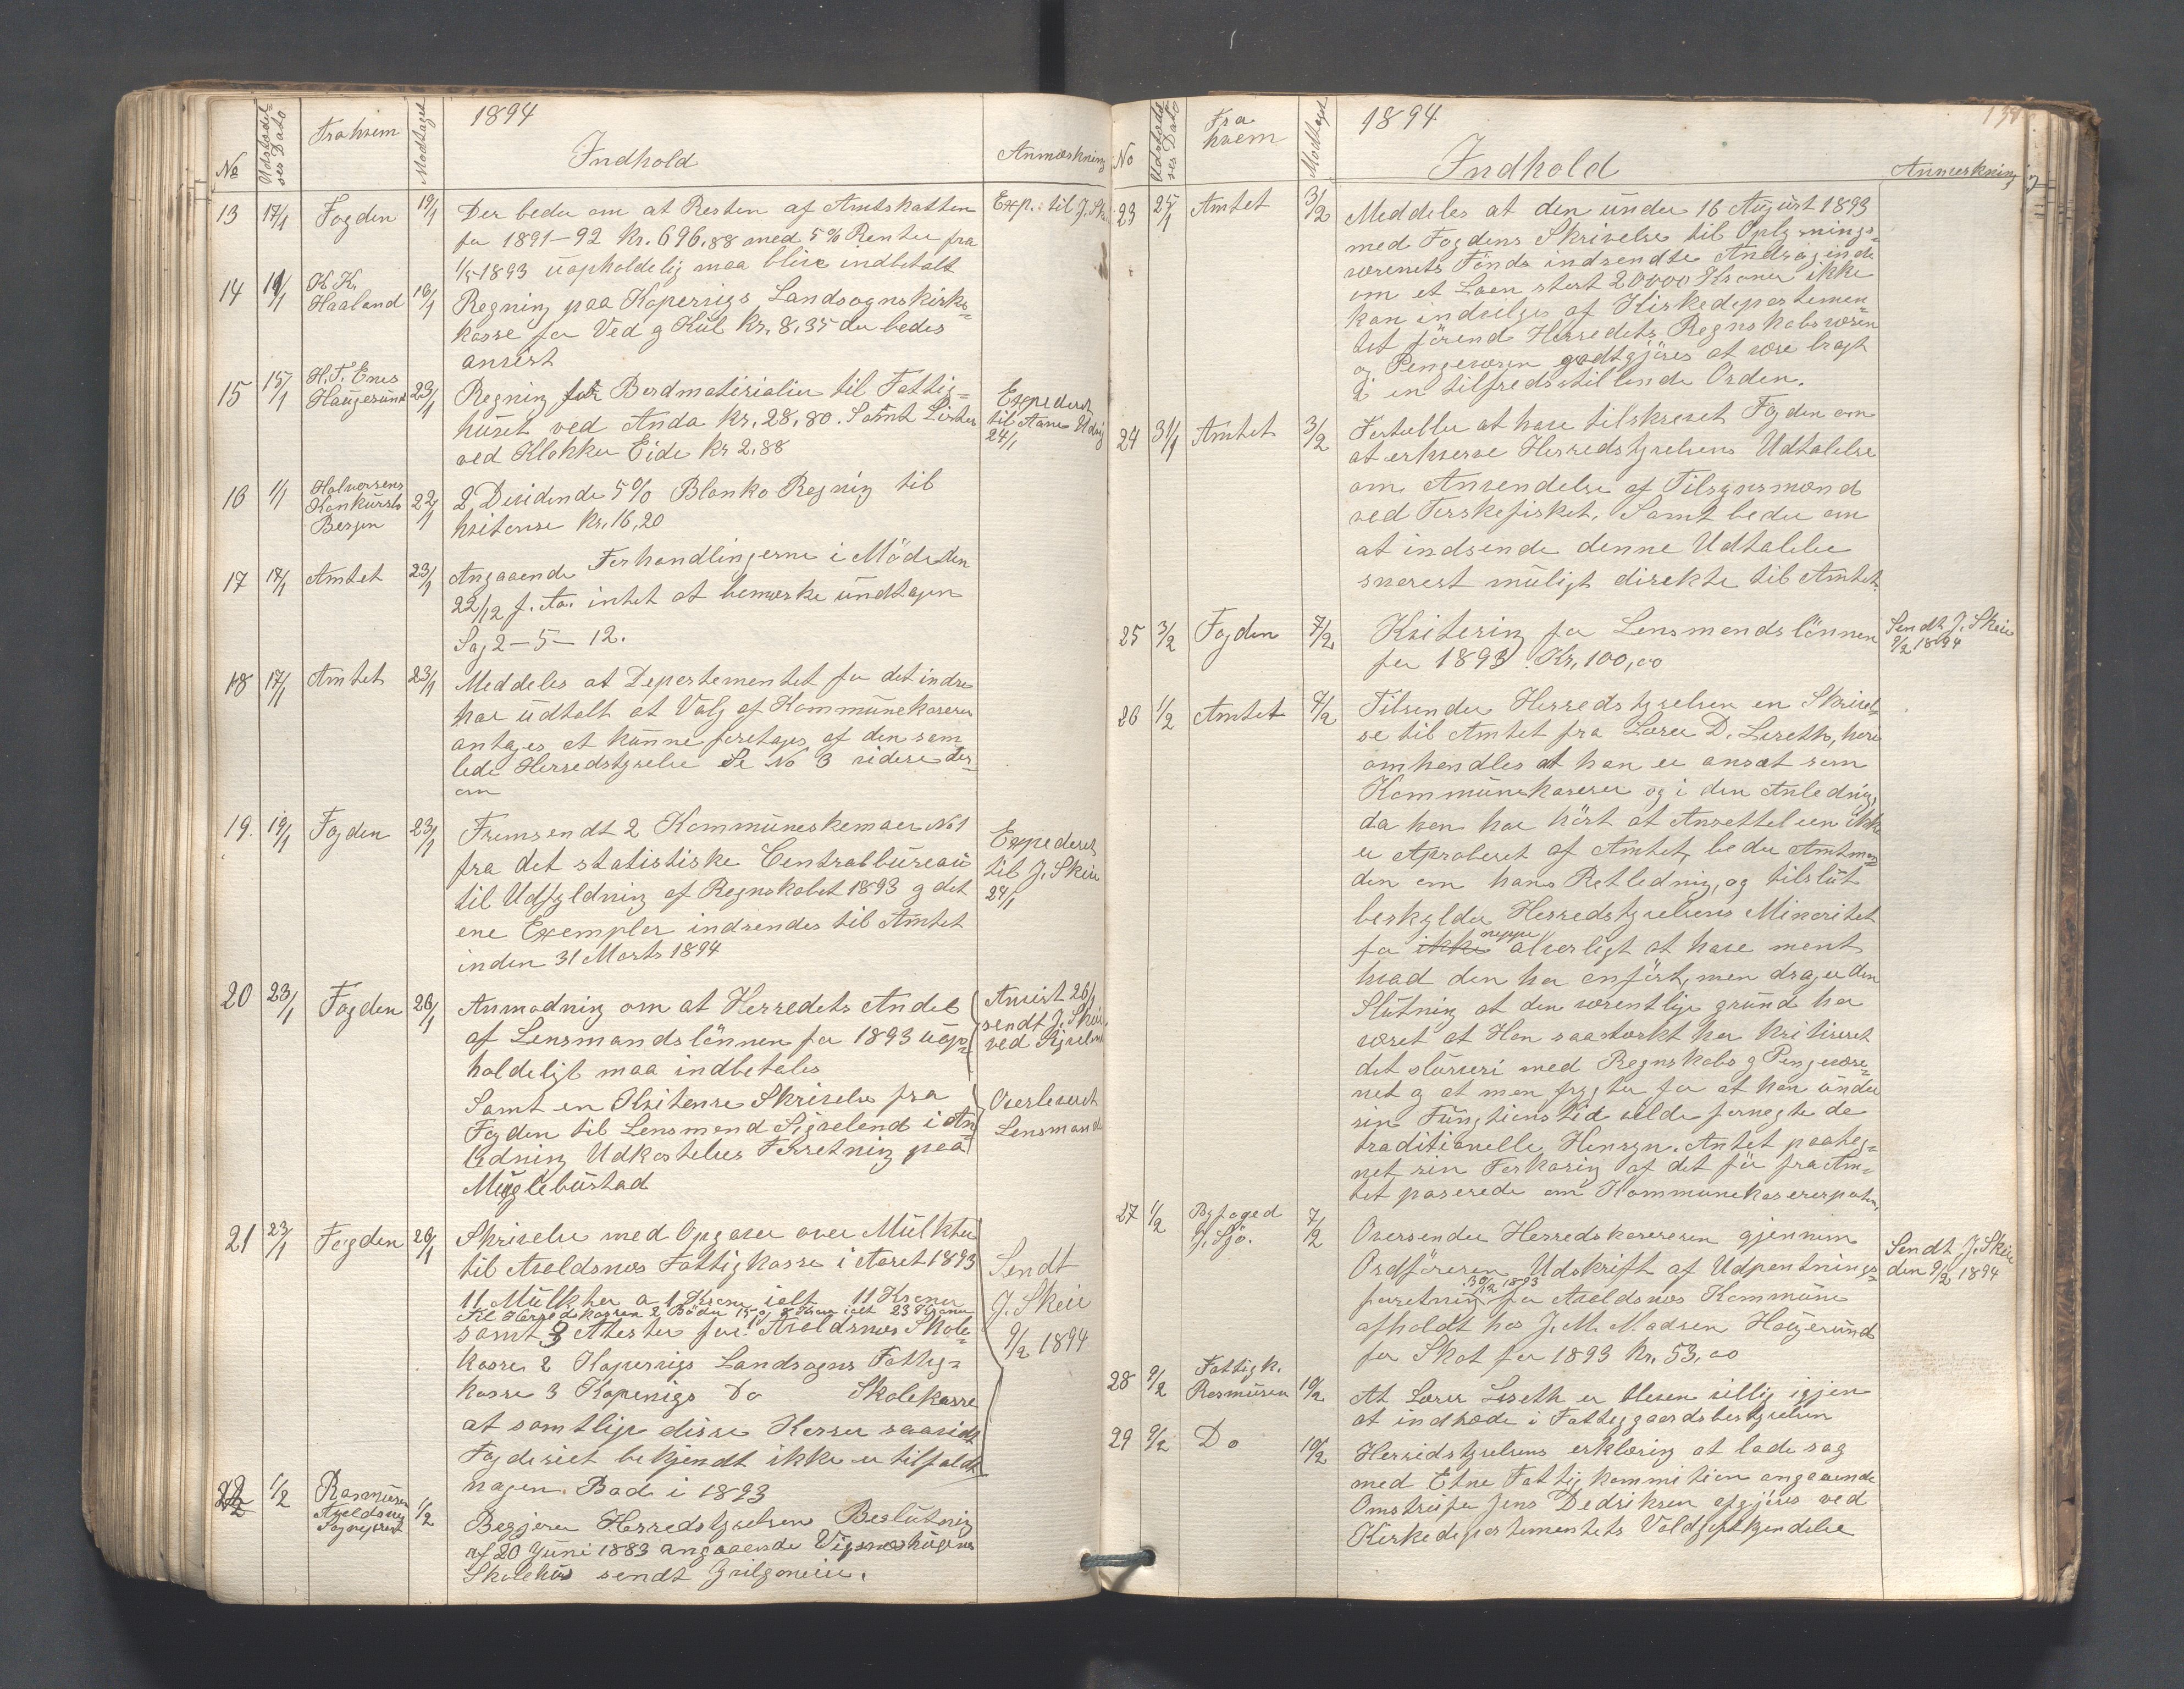 1894
No Udstedel=
ses Dato Fra hvem Modtaget Indhold Anmærkning
13 17/1 Fogden 19/1 Der beder om at Resten af Amtskatten Exp. til J. Skei
for 1891-92 Kr. 696,88 med 5% Renter fra
1/5 1893 uopholdelig maa blive indbetalt
14 K. K.
Haaland Regning paa Kopervigs Landsognskirke=
kasse for Ved og Kul Kr. 8,35 der bedes
anvist
15 15/1 H. T. Enes
Haugesund 23/1 Regning for Bordmatirialier til Fattig= Expederet
huset ved Anda Kr. 28,80. Samt Lister til
ved Klokker Eide Kr 2,88 24/1
16 1/1 Halvorsens
Konkursbo
Bergen 22/1 2 Devidende 5% Blanko Regning til
kvitense Kr. 16,20
17 17/1 Amtet 23/1 Angaaende Forhandlingerne i Möde den
22/12 f. Aa. intet at bemærke undtagen
Sag 2-5-12.
18 17/1 Amtet 23/1 Meddeles at Departementet for det indre
har udtalt at Valg af Kommunekaserer
antages at kunne foretages af den sam
lede Herredstyrelse Se No 3 videre der=
om
19. 19/1 Fogden 23/1 Fremsendt 2 Kommuneskemaer No 1 Expederet
fra det statistiske Centralbureau til J. Skeie
til Udfyldning af Regnskabet 1893 og det 24/1
ene Exemplar indsendes til Amtet
inden 31 Marts 1894
20 23/1 Fogden 26/1 Anmodning om at Herredets Andel Anvist 26/1
af Lensmandslönnen for 1893 uop= sendt J. Skeie
holdeligt maa indbetales ved
Samt en Kvitense Skrivelse fra Overleveret
Fogden til Lensmand i An Lensmand
ledning Udkastelses Forretning paa
Müglebustad
21 23/1 Fogden 26/1 Skrivelse med Opgaver over Mulkter
til Avaldsnes Fattigkasse i Aaret 1893 Sendt
11 Mulkter a 1 Krone ialt 11 Kroner J. Skeie
Til Herredskassen 2 Böder 15 og 8 Kroner ialt 23 Kroner
samt 3 Atester for: 1 Avaldsnes Skole= 9/2 1894
kasse 2 Kopervigs Landsogns Fattig=
kasse 3 Kopervigs Do Skolekasse
at samtlige disse Kasser saavidt
Fogderiet bekjendt ikke er tilfaldt
nogen Bod i 1893
22 1/2 Rasmusen
Avaldsnes
Sogneprest 1/2 Begjærer Herredstyrelsens Beslutning
af 20 Juni 1883 angaaende Vigsneshugens
Skolehus sendt
1894
No Udstedel
ses Dato Fra
hvem Modtaget Indhold Anmærkning
23 25/1 Amtet 3/2 Meddeles at den under 16 August 1893
med Fogdens Skrivelse til Oplysnings=
væsenets Fonds indsendte Andragende
om et Laan stort 20000 Kroner ikke
kan indvilges af Kirkedepartemen
tet förend Herredets Regnskabsvæsen
og Pengevæsen godtgjöres at være bragt
i en tilfredsstillende Orden.
24 31/1 Amtet 3/2 Fortæller at have tilskrevet Fogden om
at erhverve Herredstyrelsens Udtalelse
om Anvendelse af Tilsynsmænd
ved Torskefisket. Samt beder om
at indsende denne Udtalelse
snarest muligt direkte til Amtet.
25 3/2 Fogden 7/2 Kvitering for Lensmandslönnen Sendt J. Skeie
for 1893. Kr. 100,00 9/2 1894
26 1/2 Amtet 7/2 Tilsender Herredstyrelsen en Skrivel=
se til Amtet fra Lærer D. Liseth, hvori
omhandles at han er ansat som
Kommunekaserer og i den Anledning,
da han har hört at Ansettelsen ikke
er Aproberet af Amtet, beder Amtman
den om hans Retledning, og tilslut
beskylder Herredstyrelsens Minoritet
for ikke neppe alvorligt at have ment
hvad den har anfört, men drager den
Slutning at den væsentlige grund har
været at Han saa stærkt har kritiseret
det slurveri med Regnskabs og Pengevæse=
net og at man frygter for at han under
sin Fungtions tid vilde fornegte de
traditionelle Hensyn. Amtet paateg=
net sin Forkaring af det för fra Am=
tet paserede om Kommunekasererposten.
27 1/2 Byfoged
7/2 Oversender Herredskasereren gjennem Sendt J. Skeie
Ordföreren Udskrift af Udpantnings= den 9/2 1894
forretning 30/12 1893 for Avaldsnes Kommune
afholdt hos J. M. Madsen Haugesund
for Skat for 1893 Kr. 53,00
28 9/2 Fattigk.
Rasmusen 10/2 At Lærer Liseth er bleven villig igjen
at indtræde i Fattiggaardsbestyrelsen
29 9/2 Do 10/2 Herredstyrelsens erklæring at lade sag
med Etne Fattigkommition angaaende
Omstreifer Jens Dedriksen afgjöres ved
Kirkedepartementets Voldgiftkjendelse